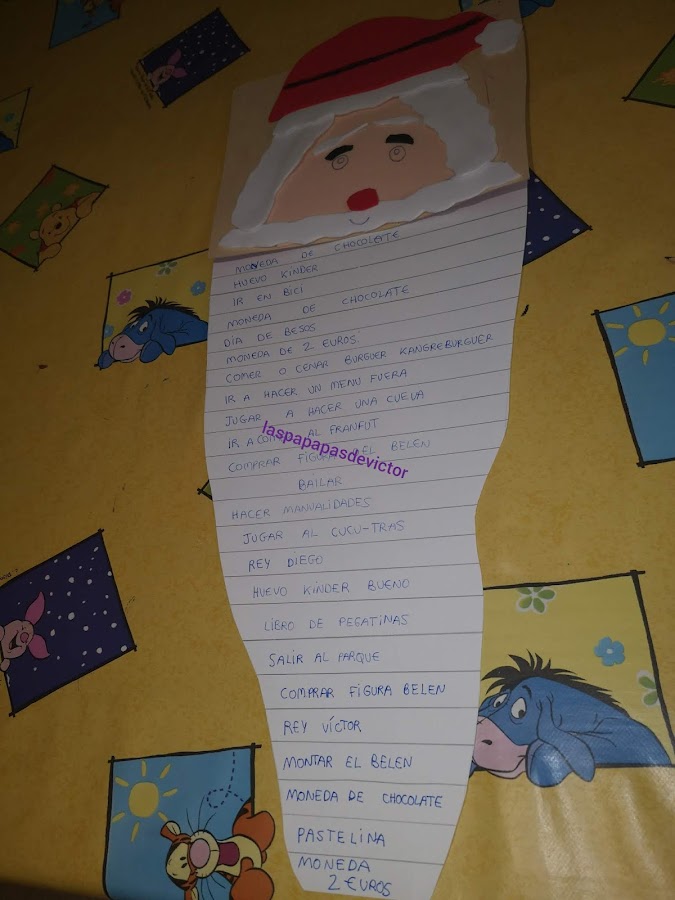 MONEDA DE CHOCOLATE
HUEVO KINDER
IR EN BICI
MONEDA DE CHOCOLATE
DIA DE BESOS
MONEDA DE 2 EUROS
COMER O CENAR BURGUER KANGREBURGUER
IR A HACER UN MENU FUERA
JUGAR A HACER UNA CUEVA
IR A AL FRANFUT
laspapapasdevictor
COMPRAR BELEN
BAILAR
HACER MANUALIDADES
JUGAR AL CUCU-TRAS
REY DIEGO
HUEVO KINDER BUENO
LIBRO DE PEGATINAS
SALIR AL PARQUE
COMPRAR FIGURA BELEN
REY VÍCTOR
MONTAR EL BELEN
MONEDA DE CHOCOLATE
PASTELINA
MONEDA
2 EUROS